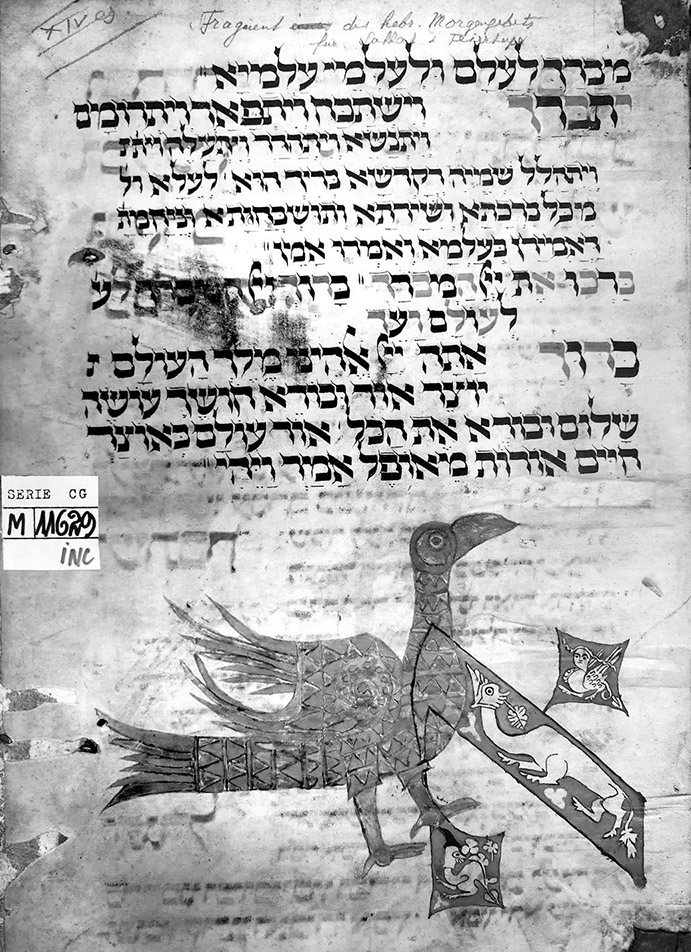 Fragment des hebr. Morgengebets
für Sabbat & Feiertage
מברך לעלם ולעלמי עלמיא
יתברך וישתבח ויתפאר ויתרומם
ויתנשא ויתהדר ויתעלה וית
ויתהלל שמיה דקדשא בריך הוא לעלא ול
מיכל ברכתא ושירתא ותושבחותא וניחמת
דאמירן בעלמא ואמרו אמן
ברכו את המברך ברוך לע
לעולם ועד
ברוך אתה אלהינו מלך העולם י
יוצר אור ובורא חושך עושה
שלום ובורא את הכל אור עולם באוצר
חיים אורות מיאופל אמר ויהי
SERIE CG
M 11629
INC